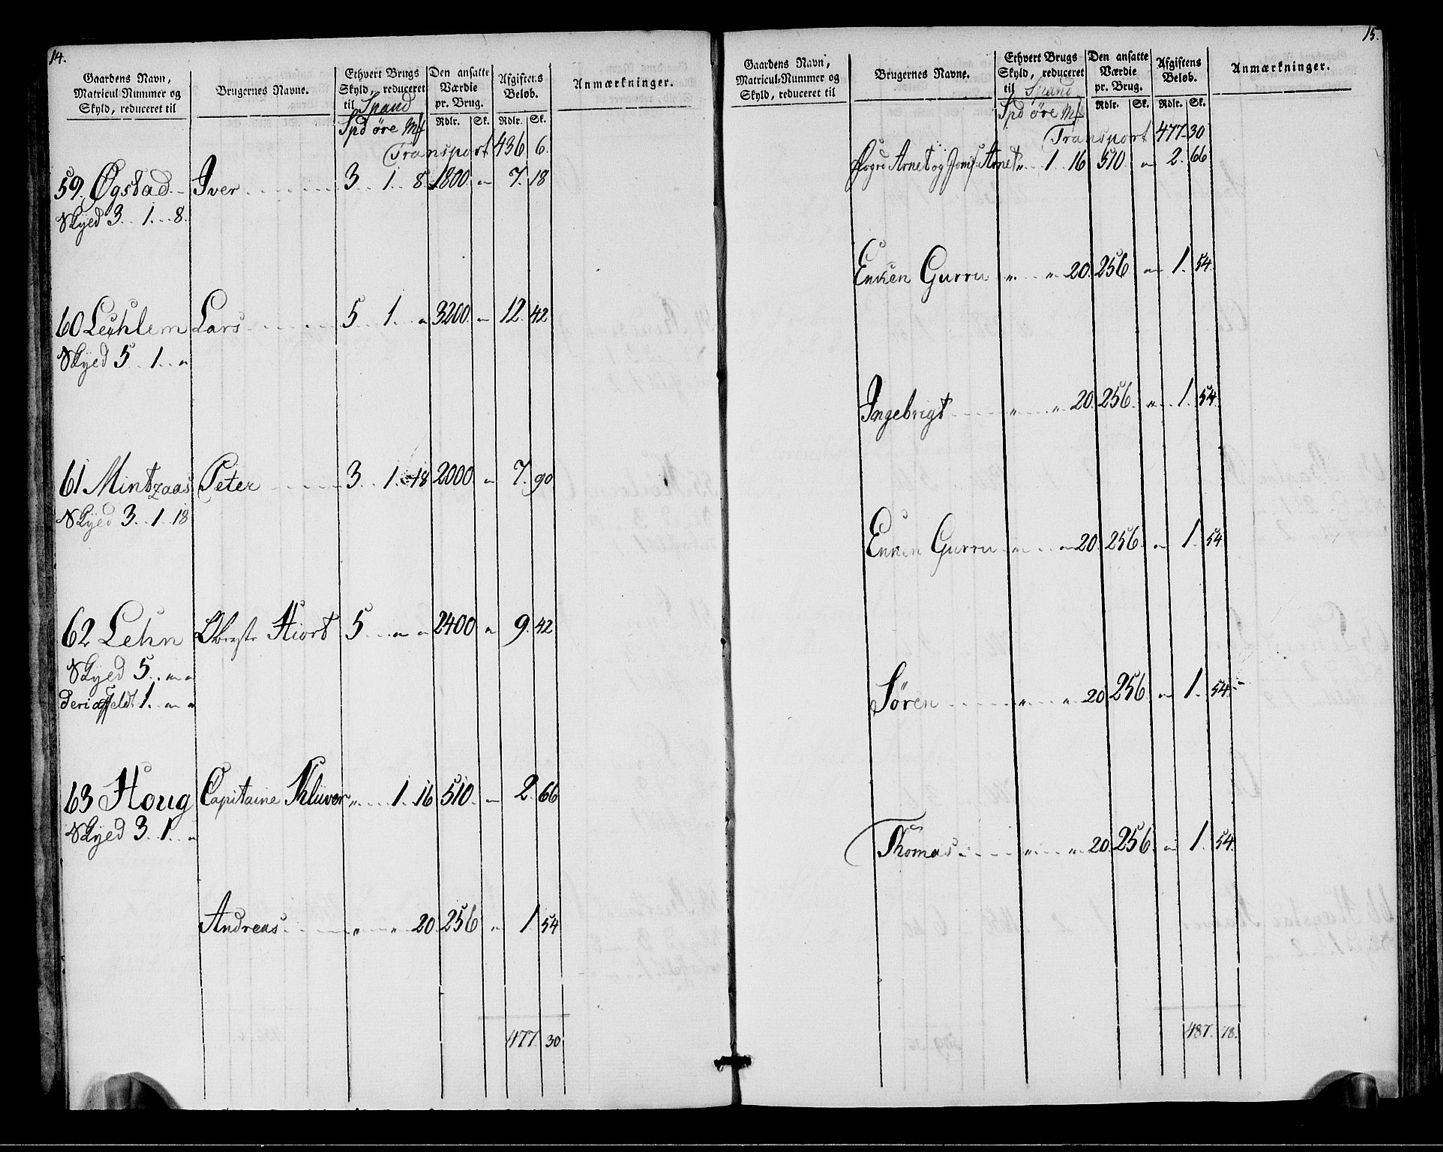 14.
Gaardens Navn, Matricul-Nummer og Skyld, reduceret til
Brugernes Navne.
Ethvert Brugs Skyld, reduceret til Spand
Spd öre Mk
Den ansatte Værdie pr. Brug.
Rdlr. Sk.
Afgiftens Beløb.
Rdlr. Sk.
Anmærkninger.
Transport 436 6.
59. Ögstad Iver 3 1 8 1800 „ 7. 18
Skyed 3 .. 1 ... 8.
60 Leuhlem Lars 5 1 „ 3200 „ 12. 42.
Skyed 5 .. 1 .. „
61 Mintzaas Peter 3 1 18 2000 „ 7. 90
Skyed 3 .. 1 18
62 Lehn Oberste Hiort 5 „ „ 2400 „ 9. 42
Skyed 5 .. „ „
deriaffeldt 1 .. „ „
63 Houg Capitaine Klüver „ 1 16 510 „ 2. 66
Skyed 3 1 .. „
Andreas „ „ 20 256 „ 1 54
477. 30
15.
Gaardens Navn, Matricul-Nummer og Skyld, reduceret til
Brugernes Navne.
Ethvert Brugs Skyld, reduceret til Spand
Spd öre Mk
Den ansatte Værdie pr. Brug.
Rdlr. Sk.
Afgiftens Beløb.
Rdlr. Sk.
Anmærkninger.
Transport 477 30
Arnet og Arnet „ 1 16 510 „ 2. 66
Enken Gurru „ „ 20. 256 „ 1. 54
Ingebrigt „ „ 20. 256. „ 1. 54
Enken Gurru „ „ 20. 256. „ 1. 54
Sören „ „ 20. 256 „ 1. 54
Thomas „ „ 20. 256. „ 1. 54.
487. 18.